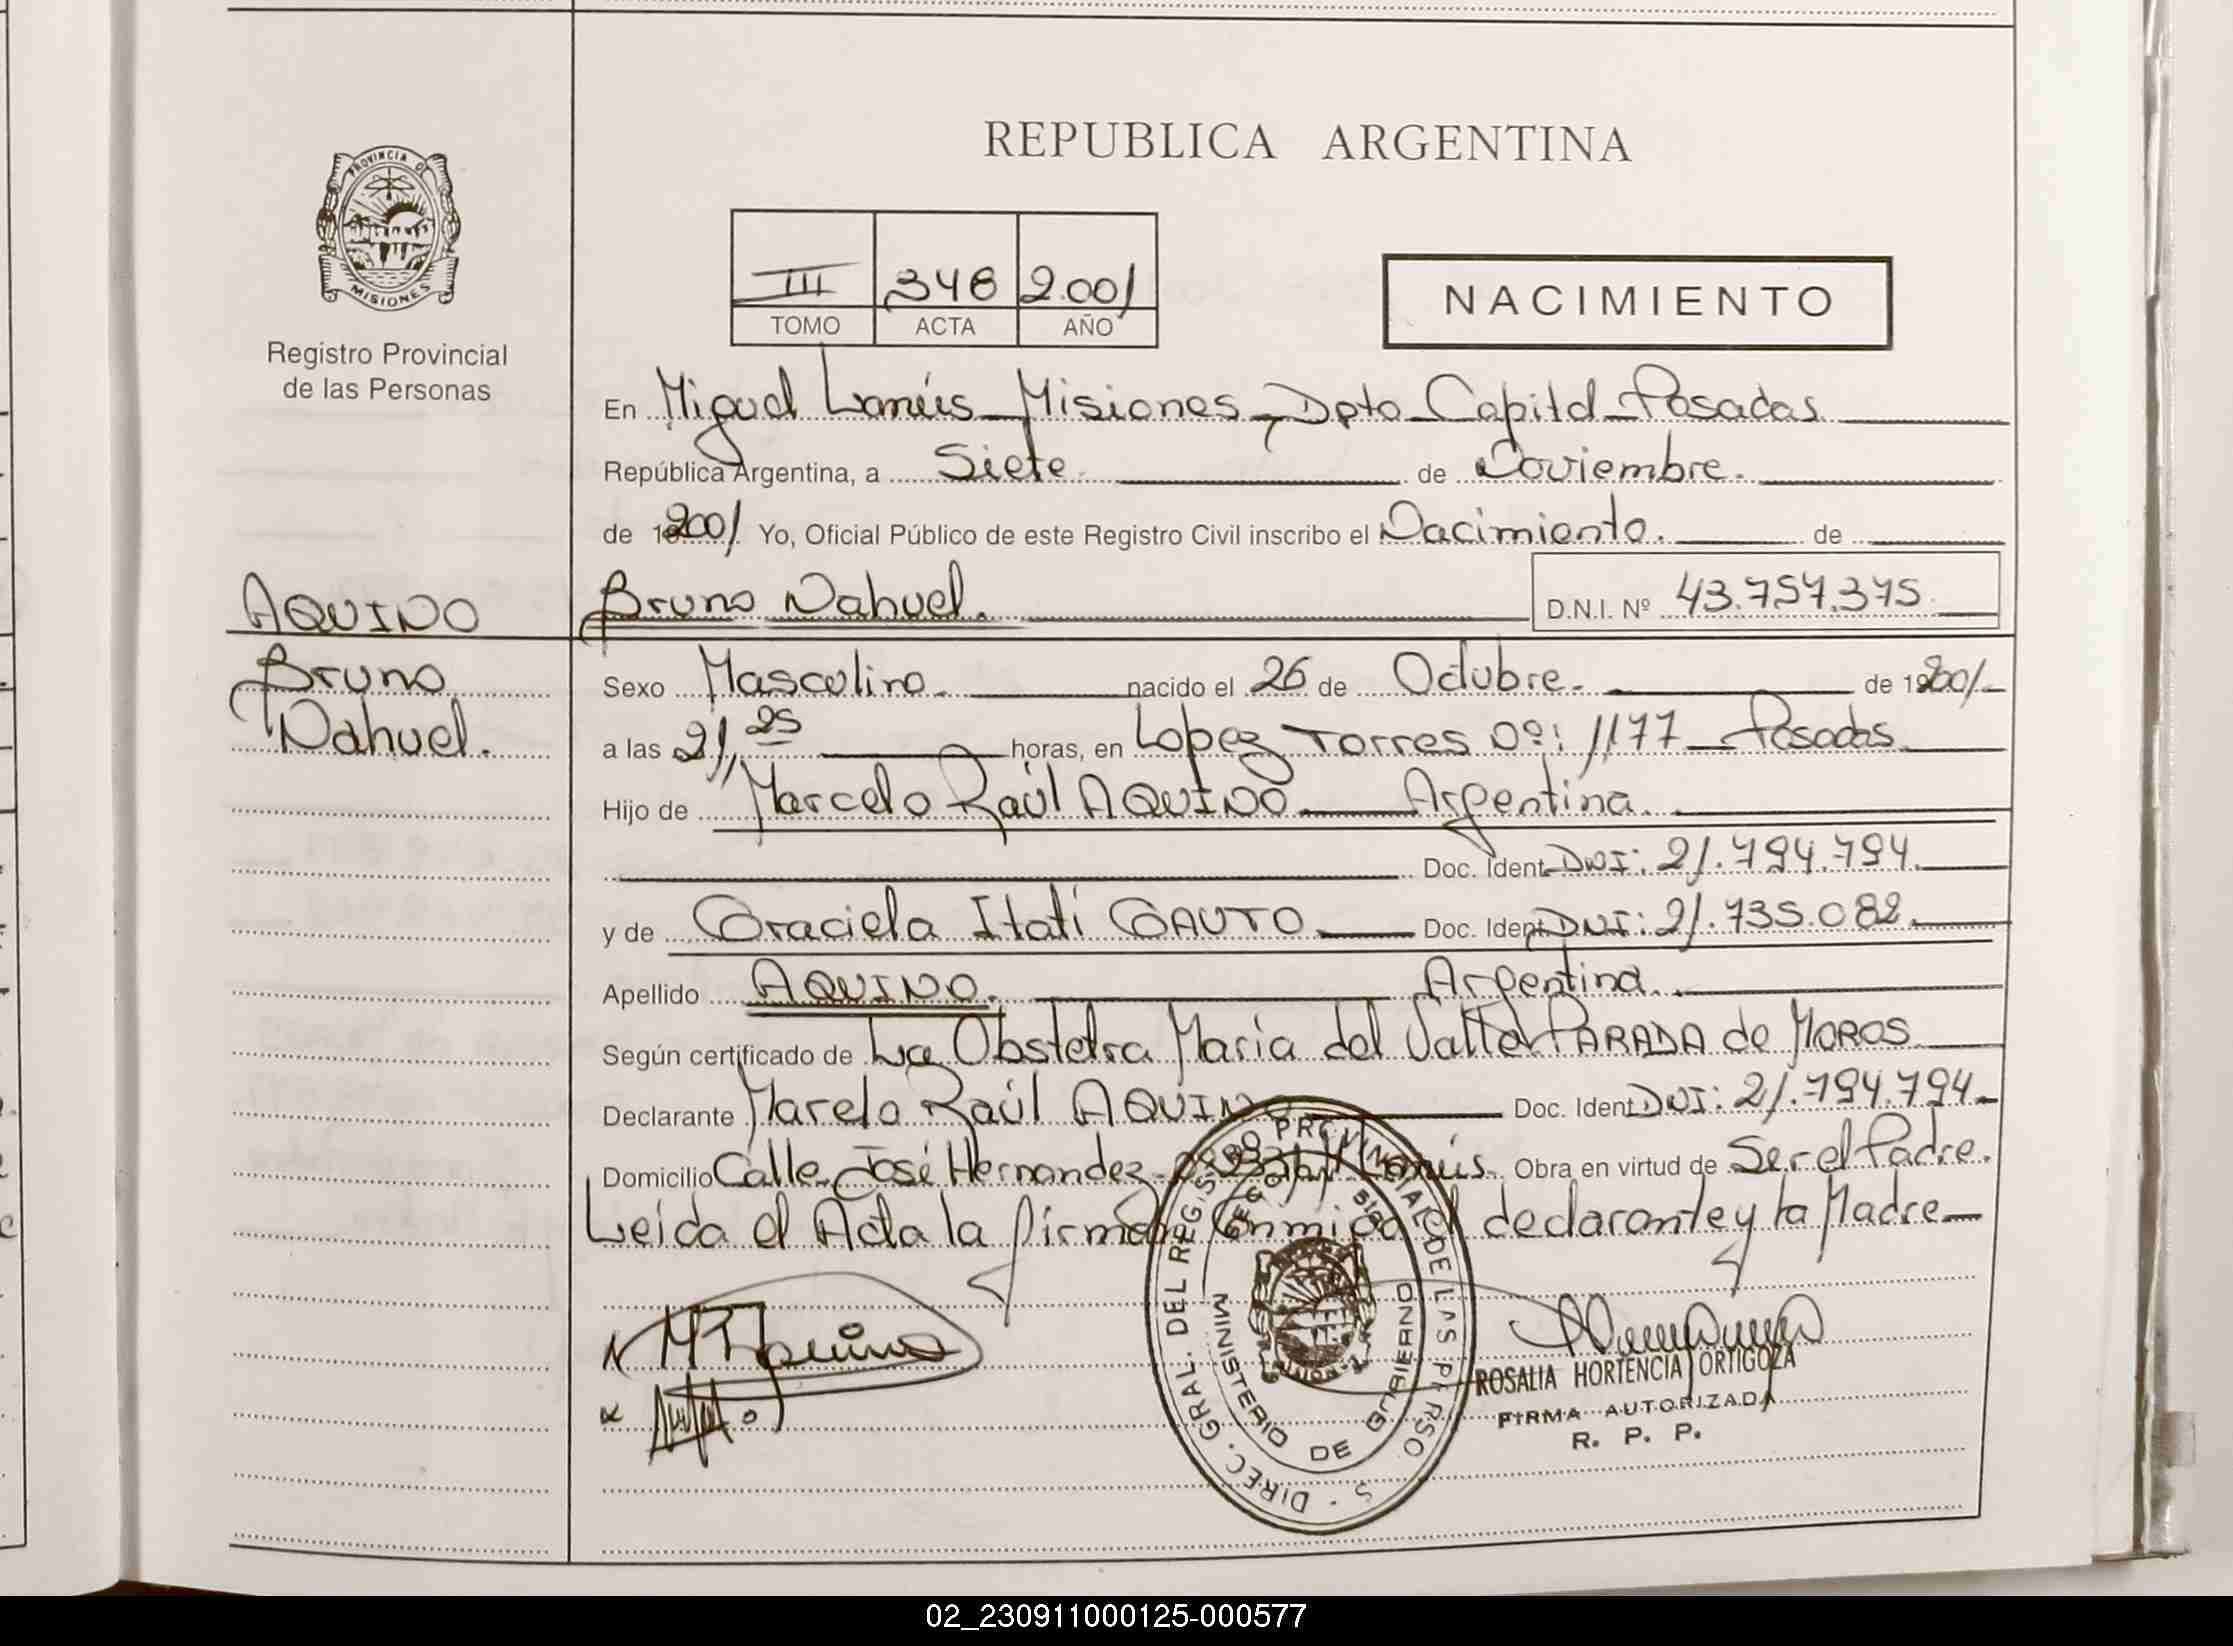 REPUBLICA ARGENTINA
PROVINCIA DE
MISIONES
Registro Provincial
de las Personas
III 346 2.001
TOMO ACTA AÑO
NACIMIENTO
En Miguel Lanús - Misiones - Dpto Capital - Posadas
República Argentina, a Siete de Noviembre.
de 2001 Yo, Oficial Público de este Registro Civil inscribo el Nacimiento. de
AQUINO Bruno Nahuel. D.N.I. Nº 43.757.375
Bruno Sexo Masculino. nacido el 26 de Octubre. de 2001
Nahuel. a las 21,25 horas, en Lopez Torres Nº: 1177 - Posadas
Hijo de Marcelo Raúl AQUINO Argentina.
Doc. Ident. DNI: 21.794.794.
y de Graciela Itatí GAUTO Doc. Ident. DNI: 21.735.082.
Apellido AQUINO. Argentina.
Según certificado de La Obstetra María del Valle PARADA de MOROS
Declarante Marelo Raúl AQUINO Doc. Ident. DNI: 21.794.794
Domicilio Calle José Hernandez Lanús. Obra en virtud de Ser el Padre.
Leida el Acta la firman Conmigo el declarante y la Madre
DIREC. GRAL. DEL REGISTRO PROVINCIAL DE LAS PERSONAS
MINISTERIO DE GOBIERNO
ROSALIA HORTENCIA ORTIGOZA
FIRMA AUTORIZADA
R. P. P.
02_230911000125-000577